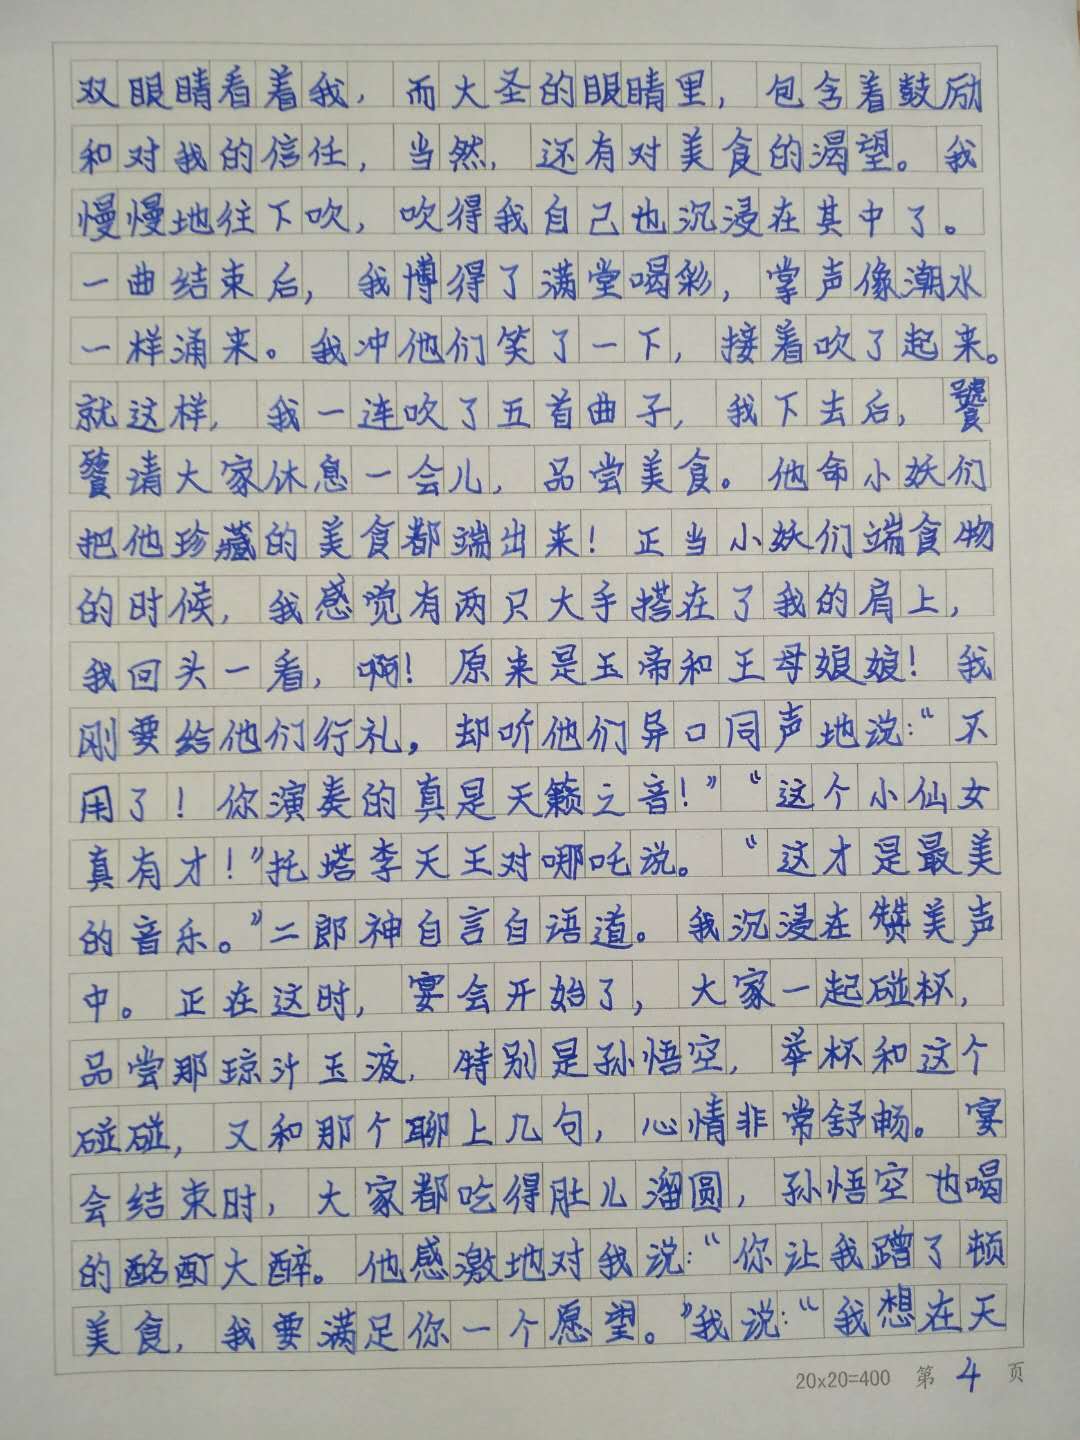 双眼睛看着我，而大圣的眼睛里，包含着鼓励
和对我的信任，当然，还有对美食的渴望。我
慢慢地往下吹，吹得我自己也沉浸在其中了。
一曲结束后，我博得了满堂喝彩，掌声像潮水
一样涌来。我冲他们笑了一下，接着吹了起来。
就这样，我一连吹了五首曲子，我下去后，饕
餮请大家休息一会儿，品尝美食。他命小妖们
把他珍藏的美食都端出来！正当小妖们端食物
的时候，我感觉有两只大手搭在了我的肩上，
我回头一看，啊！原来是玉帝和王母娘娘！我
刚要给他们行礼，却听他们异口同声地说：“不
用了！你演奏的真是天籁之音！”“这个小仙女
真有才！”托塔李天王对哪吒说。“这才是最美
的音乐。”二郎神自言自语道。我沉浸在赞美声
中。正在这时，宴会开始了，大家一起碰杯，
品尝那琼汁玉液，特别是孙悟空，举杯和这个
碰碰，又和那个聊上几句，心情非常舒畅。宴
会结束时，大家都吃得肚儿溜圆，孙悟空也喝
的酩酊大醉。他感激地对我说：“你让我蹭了顿
美食，我要满足你一个愿望。”我说：“我想在天
20×20=400 第 4 页